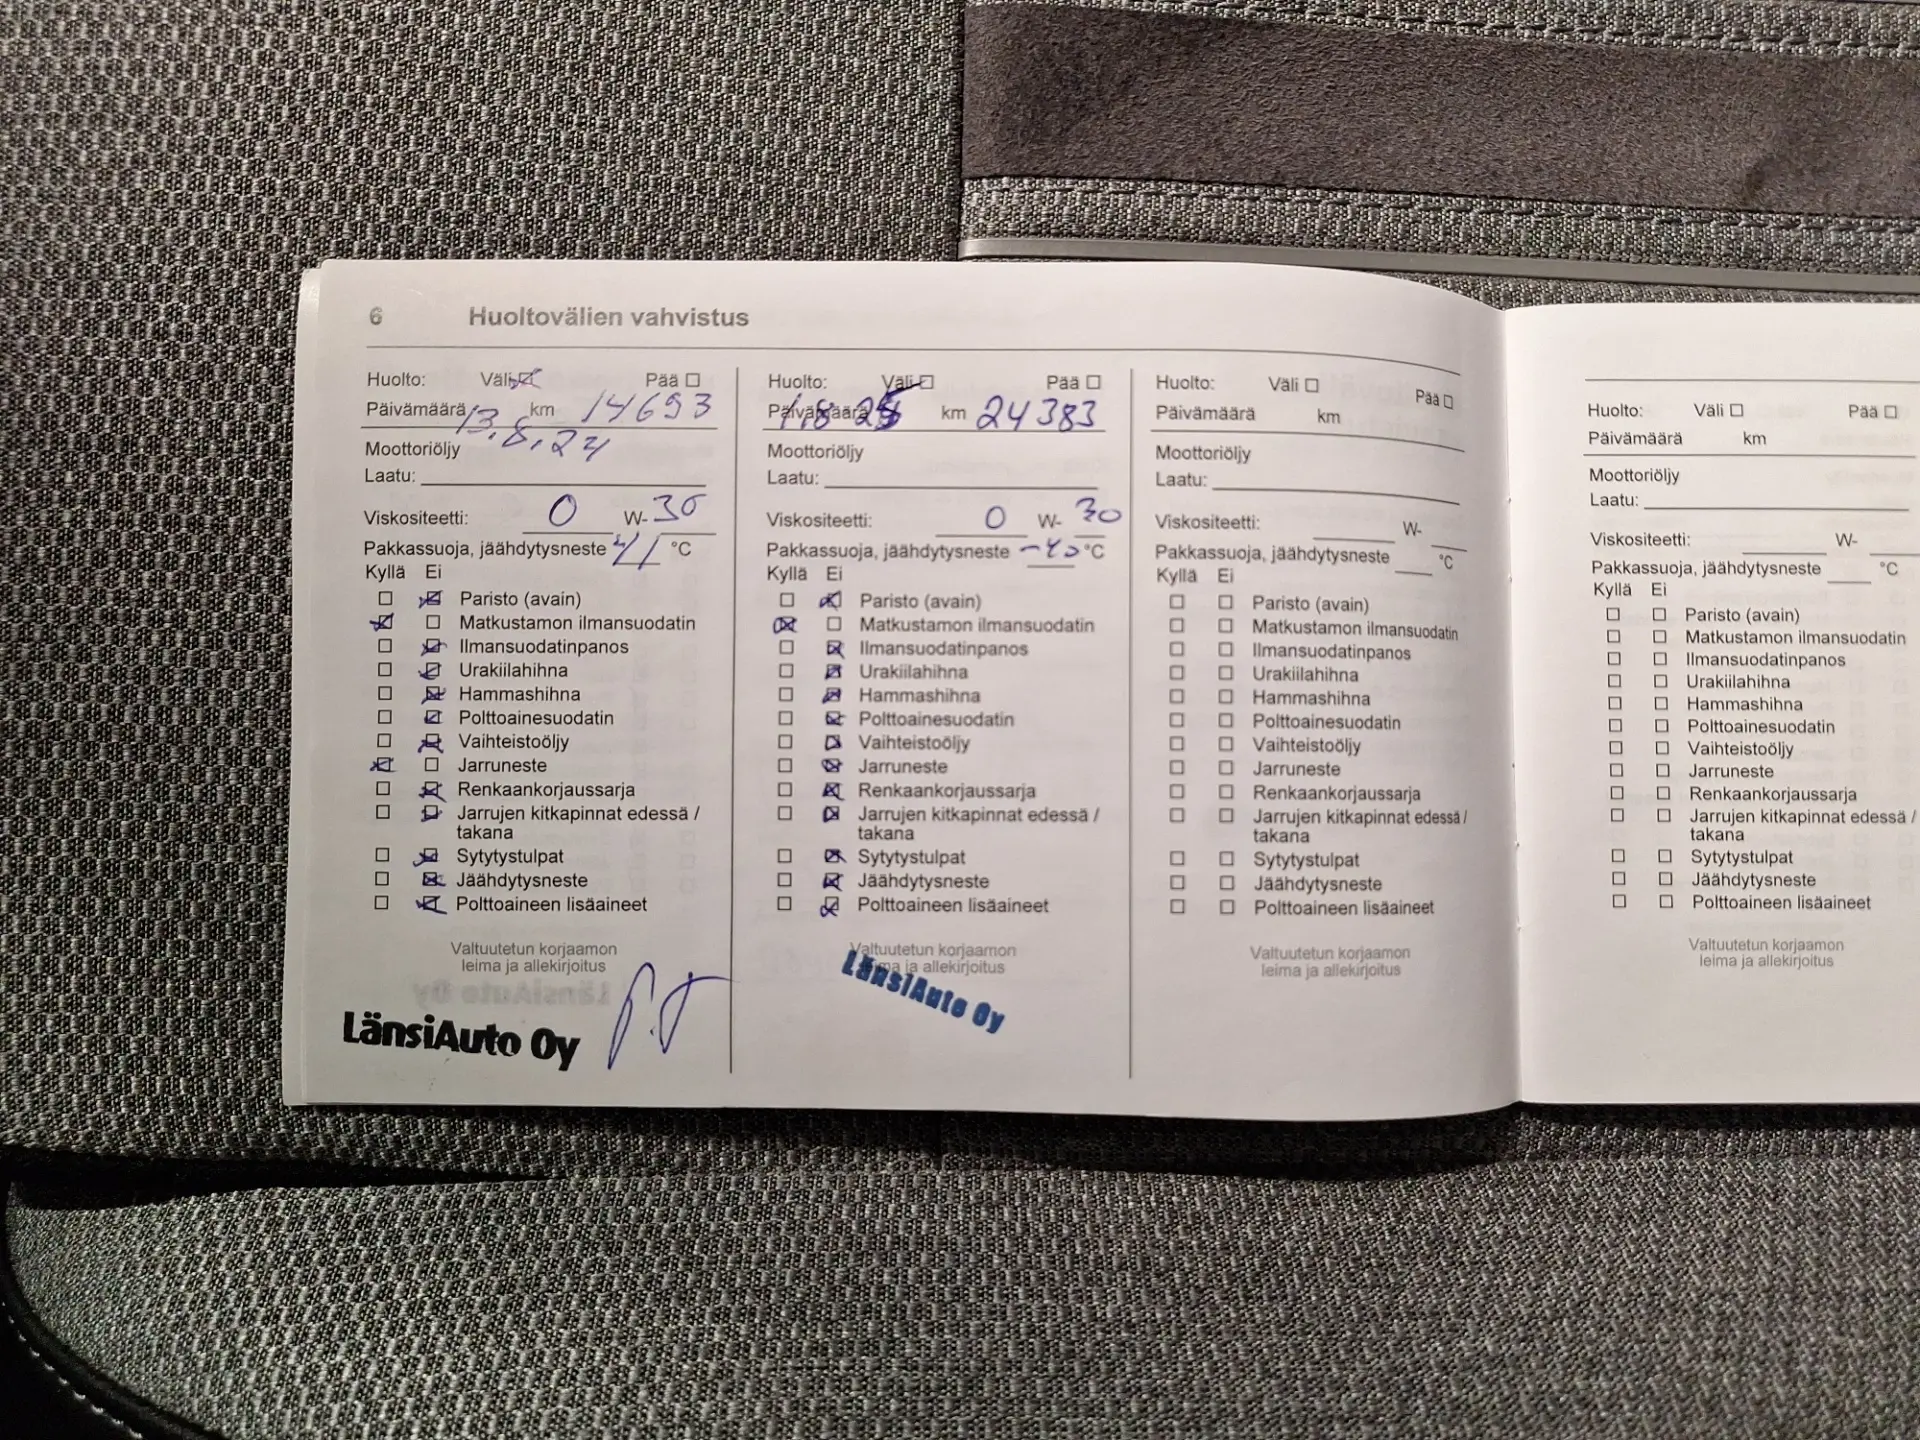 6 Huoltovälien vahvistus
Huolto: Väli Pää
Päivämäärä 13.8.24 km 14693
Moottoriöljy
Laatu:
Viskositeetti: 0 W-30
Pakkassuoja, jäähdytysneste °C
Kyllä Ei
Paristo (avain)
Matkustamon ilmansuodatin
Ilmansuodatinpanos
Urakiilahihna
Hammashihna
Polttoainesuodatin
Vaihteistoöljy
Jarruneste
Renkaankorjaussarja
Jarrujen kitkapinnat edessä /
takana
Sytytystulpat
Jäähdytysneste
Polttoaineen lisäaineet
Valtuutetun korjaamon
leima ja allekirjoitus
LänsiAuto Oy
Huolto: Väli Pää
Päivämäärä 1.8.25 km 24383
Moottoriöljy
Laatu:
Viskositeetti: 0 W-30
Pakkassuoja, jäähdytysneste -40 °C
Kyllä Ei
Paristo (avain)
Matkustamon ilmansuodatin
Ilmansuodatinpanos
Urakiilahihna
Hammashihna
Polttoainesuodatin
Vaihteistoöljy
Jarruneste
Renkaankorjaussarja
Jarrujen kitkapinnat edessä /
takana
Sytytystulpat
Jäähdytysneste
Polttoaineen lisäaineet
Valtuutetun korjaamon
leima ja allekirjoitus
LänsiAuto Oy
Huolto: Väli Pää
Päivämäärä km
Moottoriöljy
Laatu:
Viskositeetti: W-
Pakkassuoja, jäähdytysneste °C
Kyllä Ei
Paristo (avain)
Matkustamon ilmansuodatin
Ilmansuodatinpanos
Urakiilahihna
Hammashihna
Polttoainesuodatin
Vaihteistoöljy
Jarruneste
Renkaankorjaussarja
Jarrujen kitkapinnat edessä /
takana
Sytytystulpat
Jäähdytysneste
Polttoaineen lisäaineet
Valtuutetun korjaamon
leima ja allekirjoitus
Huolto: Väli Pää
Päivämäärä km
Moottoriöljy
Laatu:
Viskositeetti: W-
Pakkassuoja, jäähdytysneste °C
Kyllä Ei
Paristo (avain)
Matkustamon ilmansuodatin
Ilmansuodatinpanos
Urakiilahihna
Hammashihna
Polttoainesuodatin
Vaihteistoöljy
Jarruneste
Renkaankorjaussarja
Jarrujen kitkapinnat edessä /
takana
Sytytystulpat
Jäähdytysneste
Polttoaineen lisäaineet
Valtuutetun korjaamon
leima ja allekirjoitus